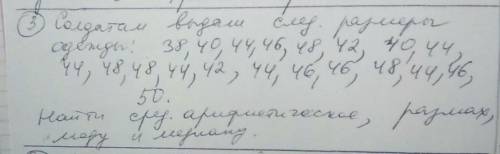 ③ Солдатам выдали след. размеры
одежды: 38, 40, 44, 46, 48, 42, 40, 44,
44, 48, 48, 44, 42, 44, 46, 46, 48, 44, 46,
50.
Найти сред. арифметическое, размах,
моду и медиану.